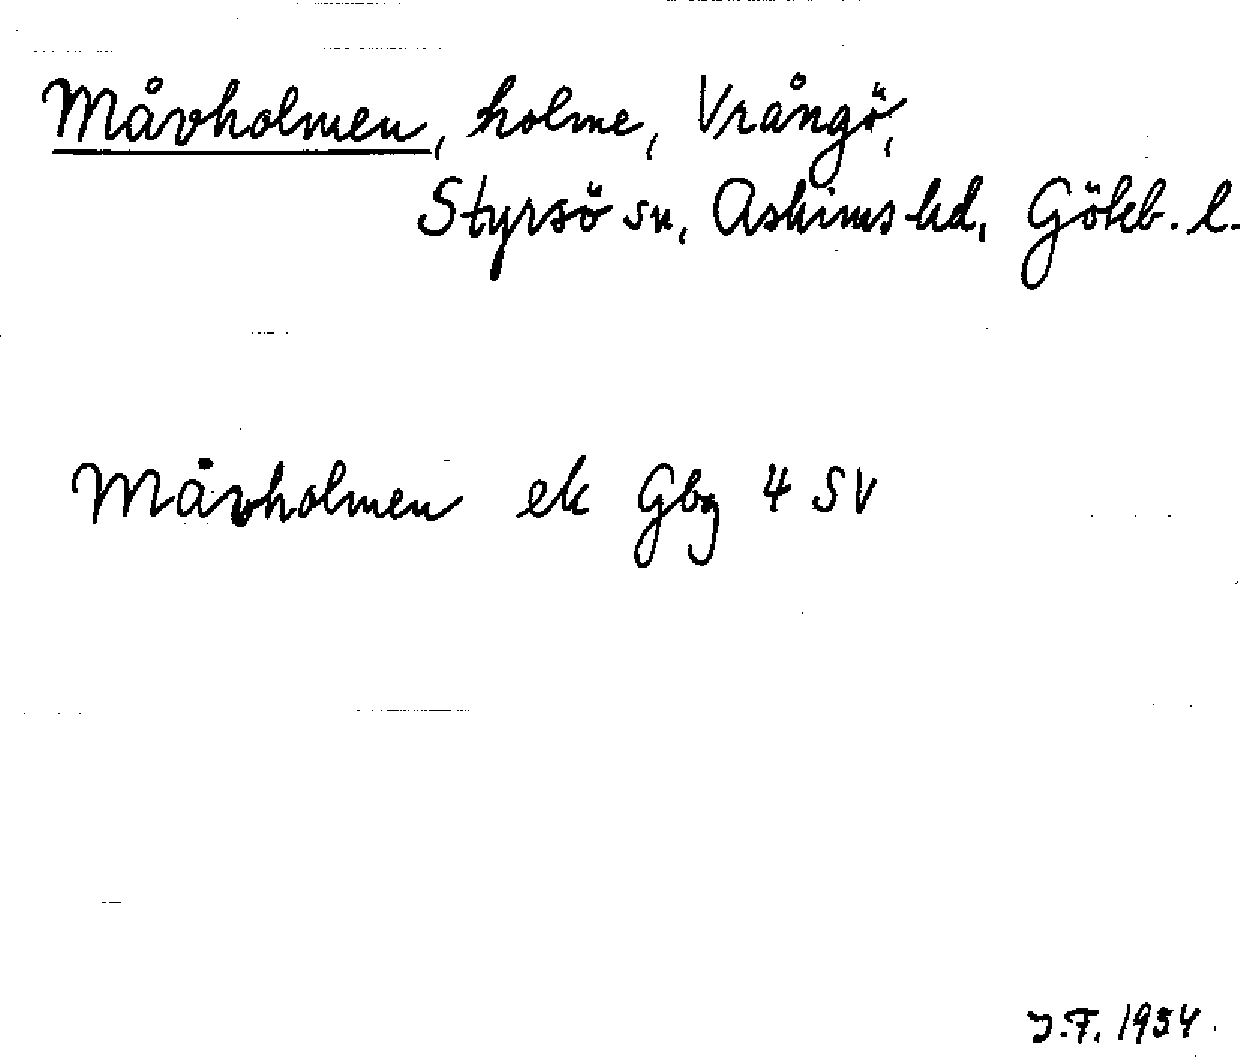 Måvholmen, holme, Vrångö,
Styrsö sn, Askims hd, Göteb. l.
Måvholmen ek Gbg 4 SV
J.F. 1934.